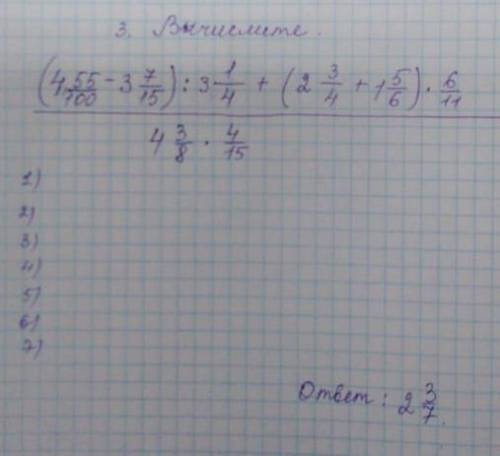 3. Вычислите.
(4 55/100 - 3 7/15) : 3 1/4 + (2 3/4 + 1 5/6) · 6/11
4 3/8 · 4/15
1)
2)
3)
4)
5)
6)
7)
Ответ: 2 3/7.